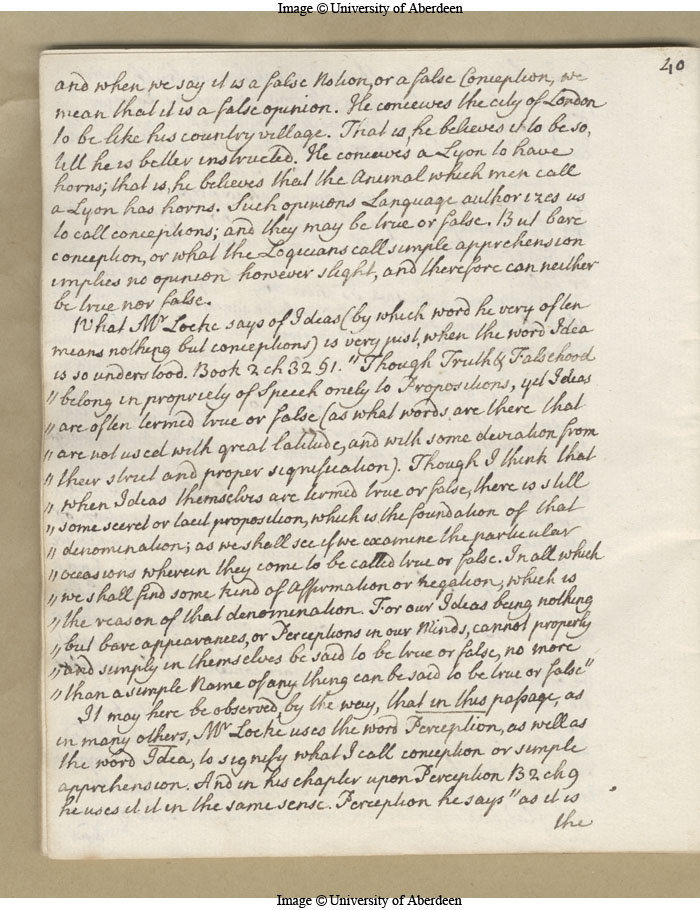 Image © University of Aberdeen
40
and when we say it is a false Notion, or a false Conception, we
mean that it is a false opinion. He conceives the city of London
to be like his country village. That is, he believes it to be so,
till he is better instructed. He conceives a Lyon to have
horns; that is, he believes that the Animal which men call
a Lyon has horns. Such opinions Language authorizes us
to call conceptions; and they may be true or false. But bare
conception, or what the Logicians call simple apprehension
implies no opinion however slight, and therefore can neither
be true nor false.
What Mr Locke says of Ideas (by which word he very often
means nothing but conceptions) is very just, when the word Idea
is so understood. Book 2 ch 32 §1. "Though Truth & Falsehood
" belong in propriety of Speech onely to Propositions, yet Ideas
" are often termed true or false (as what words are there that
" are not used with great latitude, and with some deviation from
" their strict and proper signification). Though I think that
" when Ideas themselves are termed true or false, there is still
" some secret or tacit proposition, which is the foundation of that
" denomination; as we shall see if we examine the particular
" occasions wherein they come to be called true or false. In all which
" we shall find some kind of Affirmation or negation, which is
" the reason of that denomination. For our Ideas being nothing
" but bare appearances, or Perceptions in our Minds, cannot properly
" and simply in themselves be said to be true or false, no more
" than a simple Name of any thing can be said to be true or false"
It may here be observed by the way, that in this passage, as
in many others, Mr Locke uses the word Perception, as well as
the word Idea, to signify what I call conception or simple
apprehension. And in his chapter upon Perception B 2 ch 9
he uses it it in the same sense. Perception he says "as it is
the
Image © University of Aberdeen